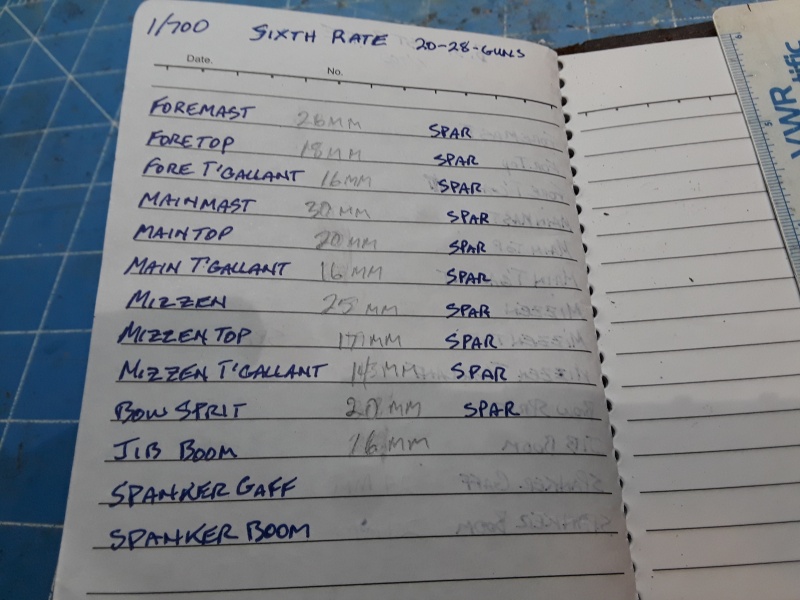 1/700 SIXTH RATE 20-28-GUNS
Date.
No.
FOREMAST 26MM SPAR
FORETOP 18MM SPAR
FORE T'GALLANT 16MM SPAR
MAINMAST 30MM SPAR
MAINTOP 20MM SPAR
MAIN T'GALLANT 16MM SPAR
MIZZEN 25MM SPAR
MIZZEN TOP 17MM SPAR
MIZZEN T'GALLANT MM SPAR
BOW SPRIT MM SPAR
JIB BOOM 16MM
SPANKER GAFF
SPANKER BOOM
VWR